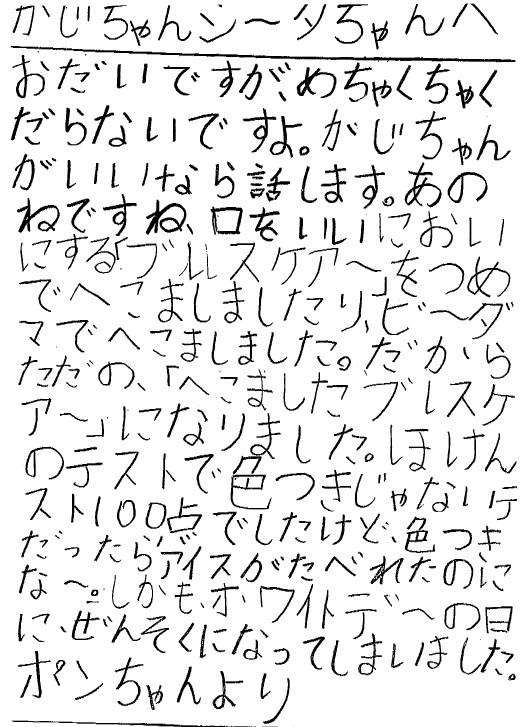 かじちゃんシータちゃんへ
おだいですが、めちゃくちゃく
だらないですよ。がじちゃん
がいいなら話します。あの
ねですね、口をいいにおい
にする「ブレスケア〜」をつめ
でへこましましたり、ビーダ
マでへこましました。だから
ただの、「へこました ブレスケ
ア〜」になりました。ほけん
のテストで色つきじゃないテ
スト100点でしたけど、色つき
だったら、アイスがたべれたのに
な〜。しかも、ホワイトデ〜の日
に、ぜんそくになってしまいました。
ポンちゃんより